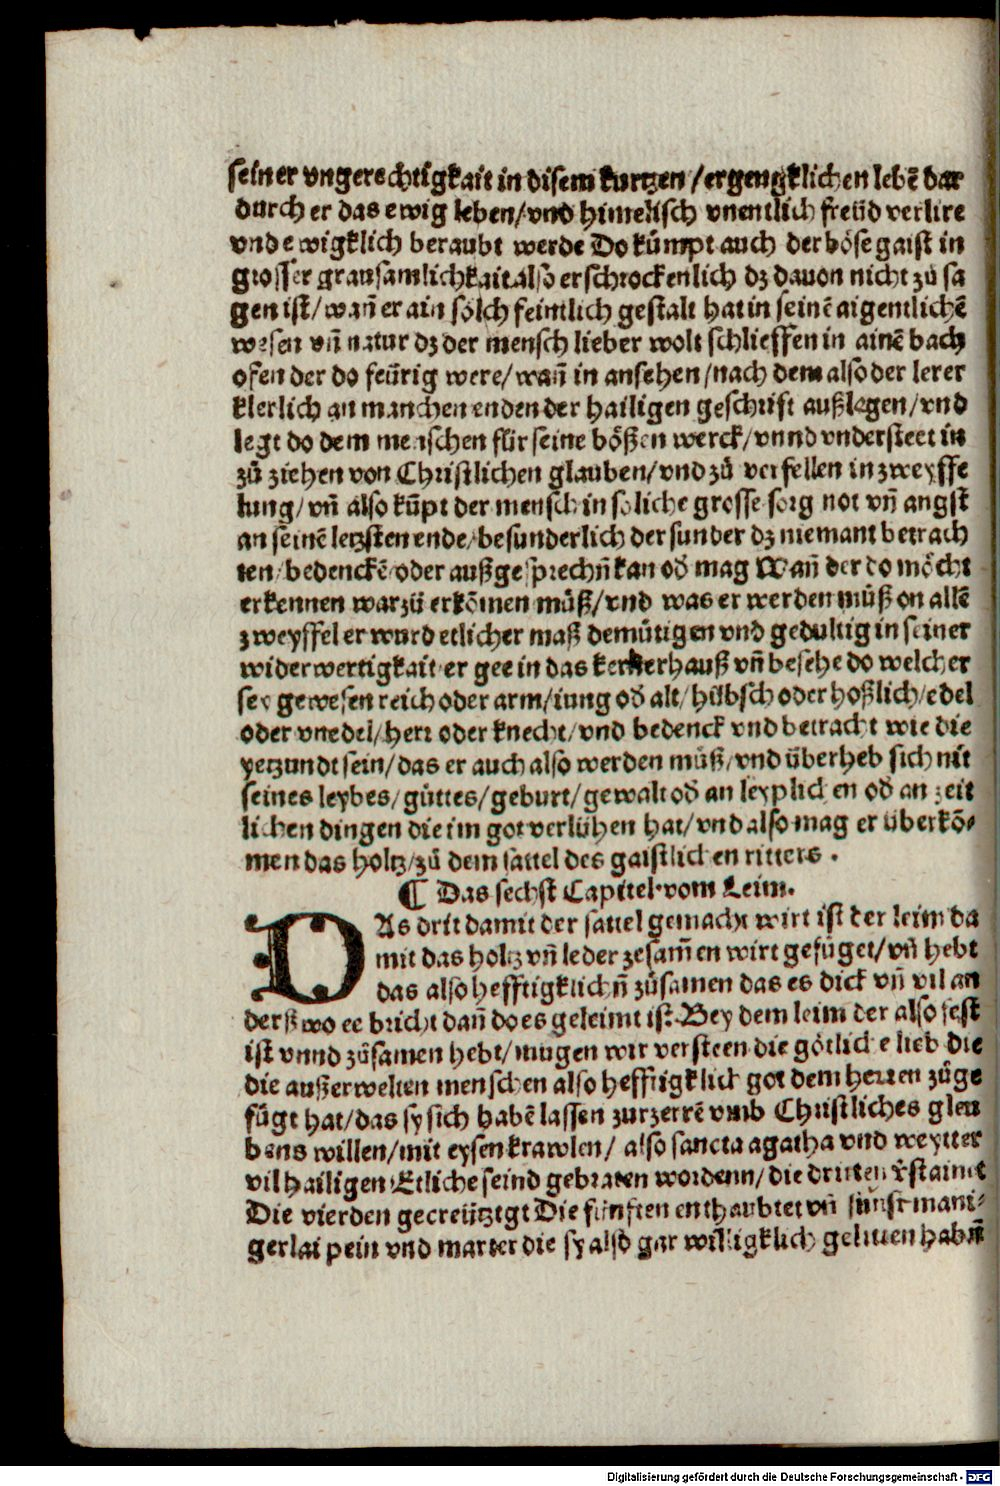 seiner vngerechtigkait in disem kurtzen / ergengklichen lebē dar
durch er das ewig leben / vnd himelisch vnentlich freüd verlire
vnd ewigklich beraubt werde Do kümpt auch der böse gaist in
grosser grausamlichkait also erschrockenlich dz dauon nicht zů sa
gen ist / wañ er ain sölch feintlich gestalt hat in seinē aigentlichē
wesen vñ natur dz der mensch lieber wolt schlieffen in ainē bach
ofen der do feürig were / wañ in ansehen / nach dem also der lerer
klerlich an manchen enden der hailigen geschrift außlegen / vnd
legt do dem menschen für seine bößen werck / vnnd vndersteet in
zů ziehen von Christlichen glauben / vnd zů verfellen in zweyffe
lung / vñ also küpt der mensch in soliche grosse sorg not vñ angst
an seinē letzsten ende / besunderlich der sunder dz niemant betrach
ten / bedenckē oder außgesprechñ kan od̄ mag Wañ der do möcht
erkennen warzů erkōmen můß / vnd was er werden můß on allē
zweyffel er wurd etlicher maß demütigen vnd gedultig in seiner
widerwertigkait er gee in das kerkerhauß vñ besehe do welcher
sey gewesen reich oder arm / iung od̄ alt / hübsch oder hoßlich / edel
oder vnedel / herr oder knecht / vnd bedenck vnd betracht wie die
yetzundt sein / das er auch also werden můß / vnd überheb sich nit
seines leybes / gůttes / geburt / gewalt od̄ an leyplichen od̄ an zeit
lichen dingen die im got verlühen hat / vnd also mag er überkō-
men das holtz / zů dem sattel des gaistlichen ritters .
¶ Das sechst Capitel vom Leim.
DAs drit damit der sattel gemacht wirt ist der leim da
mit das holtz vñ leder zesam̄en wirt gefüget / vñ hebt
das also hefftigklichñ zůsamen das es dick vñ vil an
derßwo ee bricht dañ do es geleimt ist. Bey dem leim der also fest
ist vnnd zůsamen hebt / mugen wir versteen die götliche lieb die
die außerwelten menschen also hefftigklich got dem herren zůge
fügt hat / das sy sich habē lassen zurzerrē vmb Christliches glau
bens willen / mit eysen krawlen / also sancta agatha vnd weytter
vil hailigen Etliche seind gebraten wordenn / die dritten v̄stainet
Die vierden gecreützigt Die fünften enthaubtet vñ sunst mani-
gerlai pein vnd marter die sy also gar willigklich geliten habñ
Digitalisierung gefördert durch die Deutsche Forschungsgemeinschaft - DFG